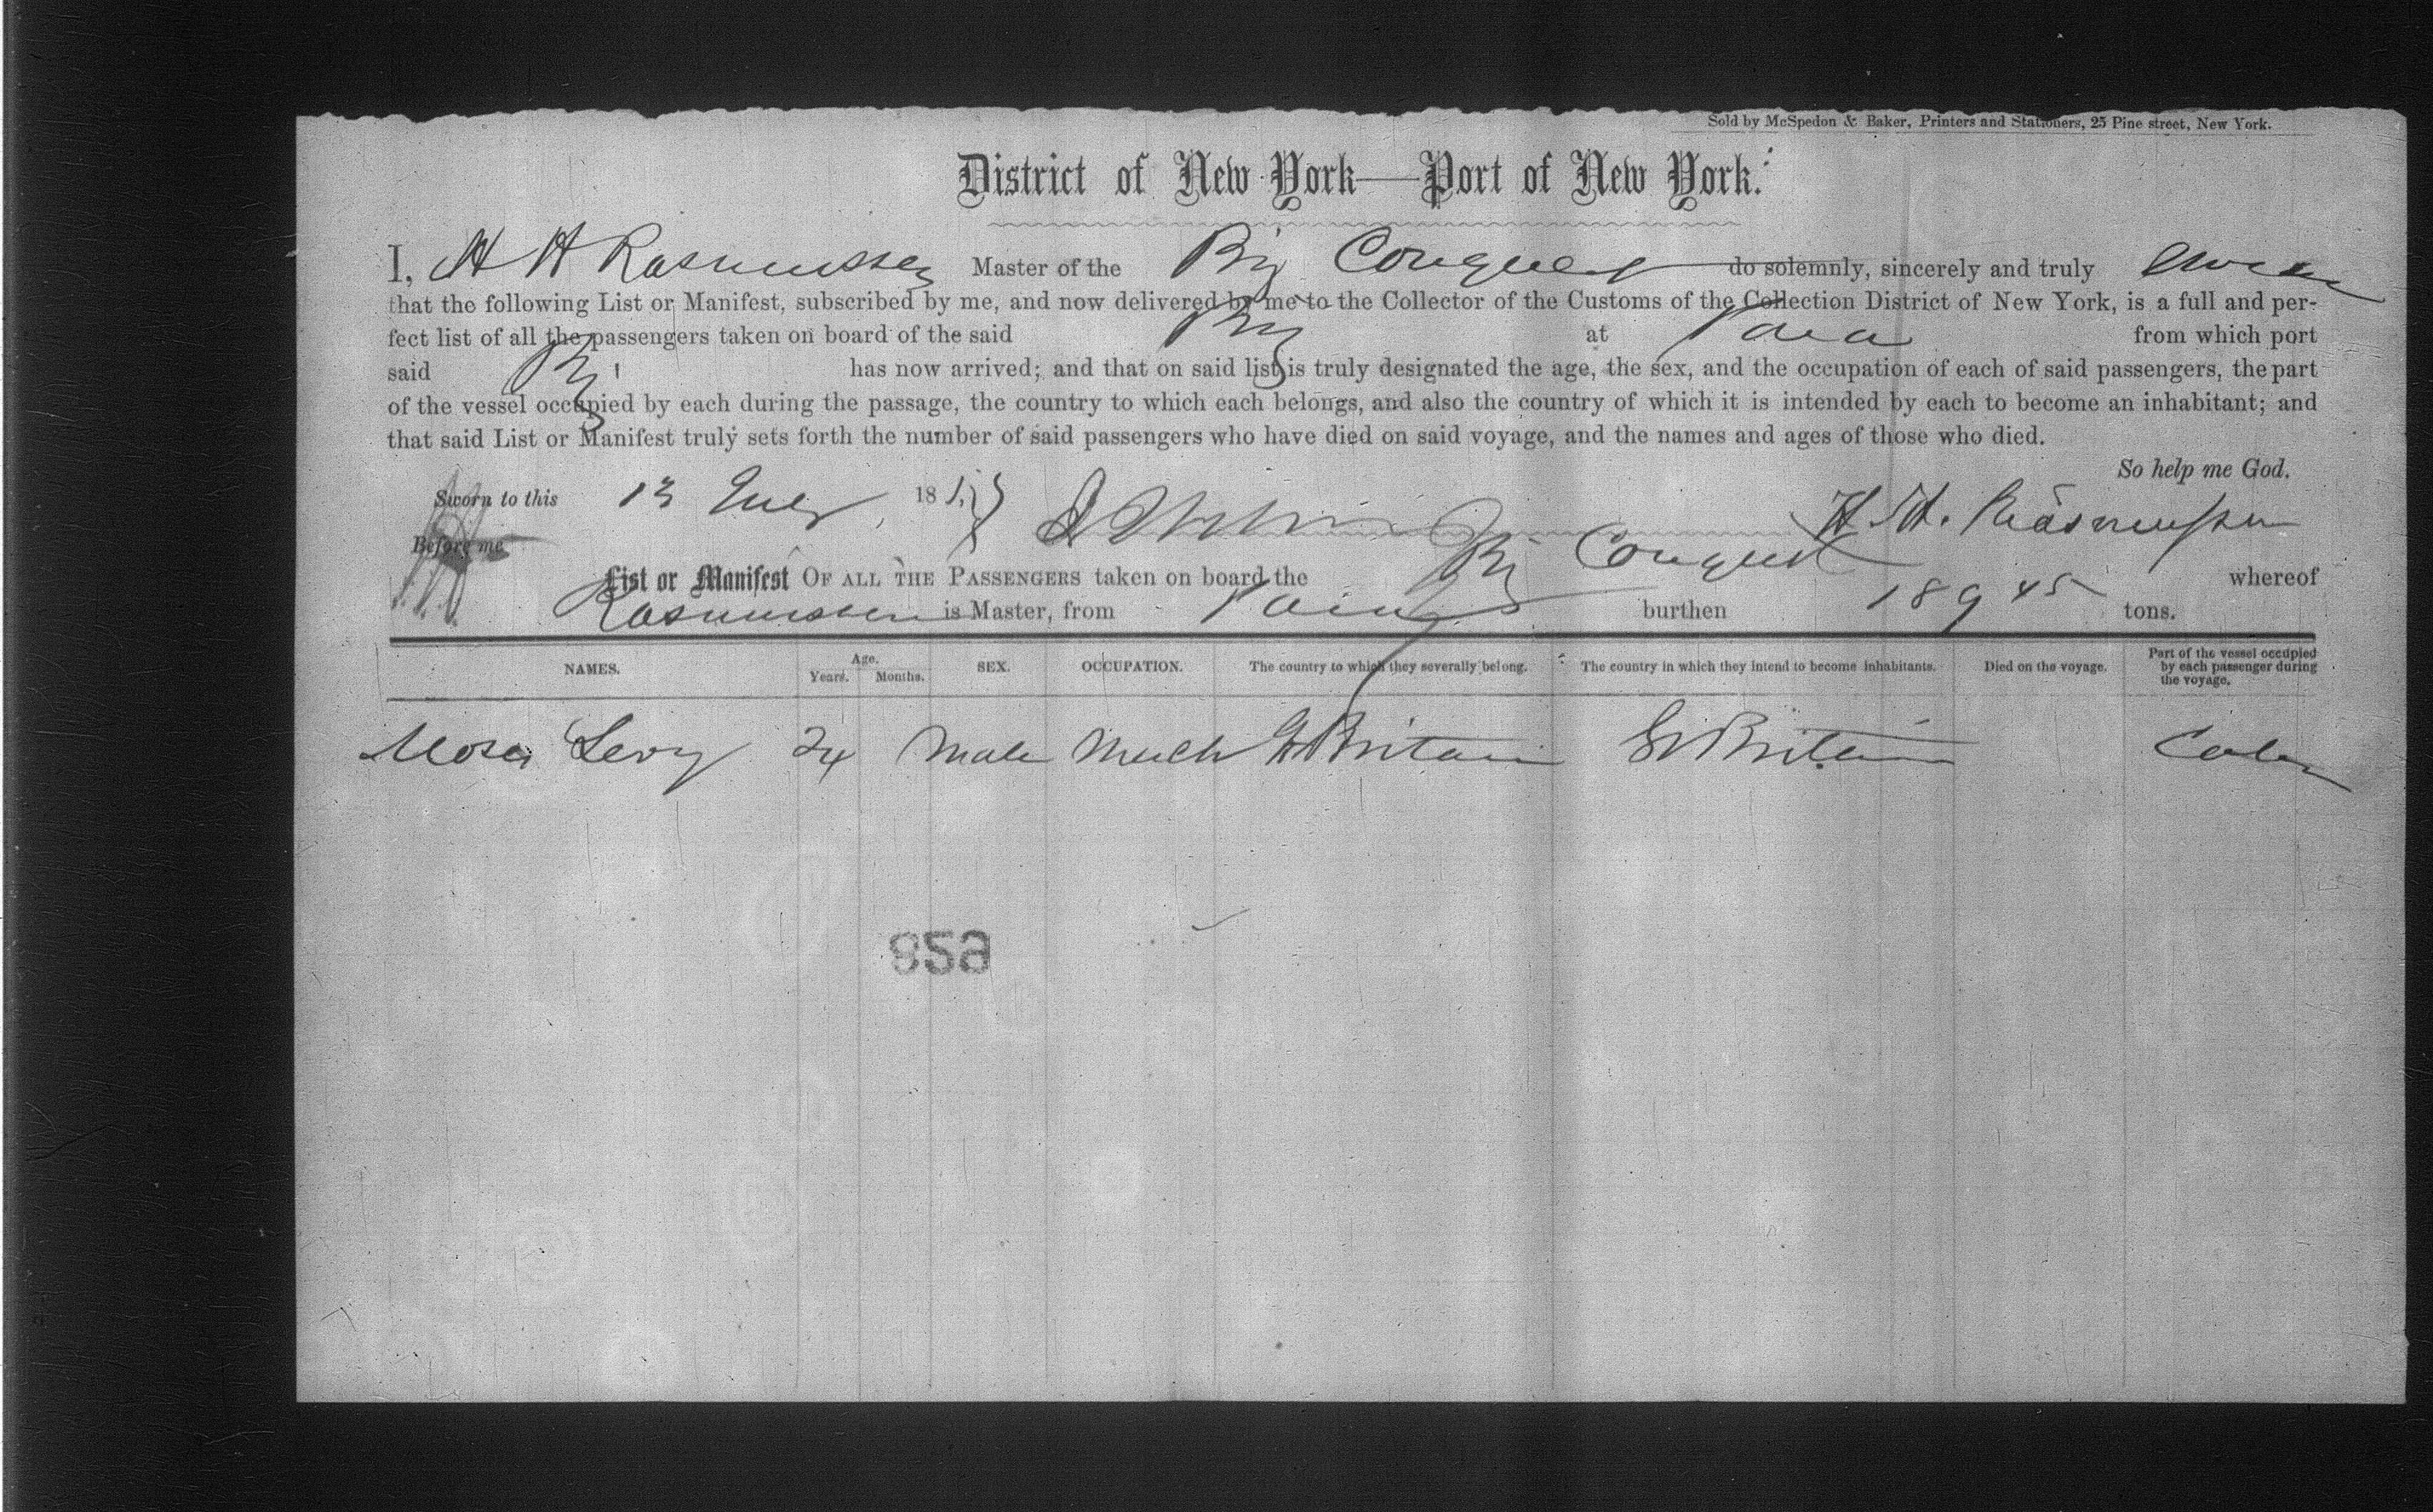 Sold by McSpedon & Baker, Printers and Stationers, 25 Pine street, New York.
District of New York—Port of New York.
I, H H Rasmussen Master of the Bg Conquest do solemnly, sincerely and truly swear
that the following List or Manifest, subscribed by me, and now delivered by me to the Collector of the Customs of the Collection District of New York, is a full and per-
fect list of all the passengers taken on board of the said Bg at Para from which port
said Bg has now arrived; and that on said list is truly designated the age, the sex, and the occupation of each of said passengers, the part
of the vessel occupied by each during the passage, the country to which each belongs, and also the country of which it is intended by each to become an inhabitant; and
that said List or Manifest truly sets forth the number of said passengers who have died on said voyage, and the names and ages of those who died.
So help me God.
Sworn to this 13 18
H. H. Rasmussen
Before me
List or Manifest OF ALL THE PASSENGERS taken on board the Bg Conquest whereof
Rasmussen is Master, from Para burthen 189 45 tons.
NAMES. Age. Years. Months. SEX. OCCUPATION. The country to which they severally belong. The country in which they intend to become inhabitants. Died on the voyage. Part of the vessel occupied by each passenger during the voyage.
Moses Levy 24 Male Mech Gt Britain Gt Britain Cabin